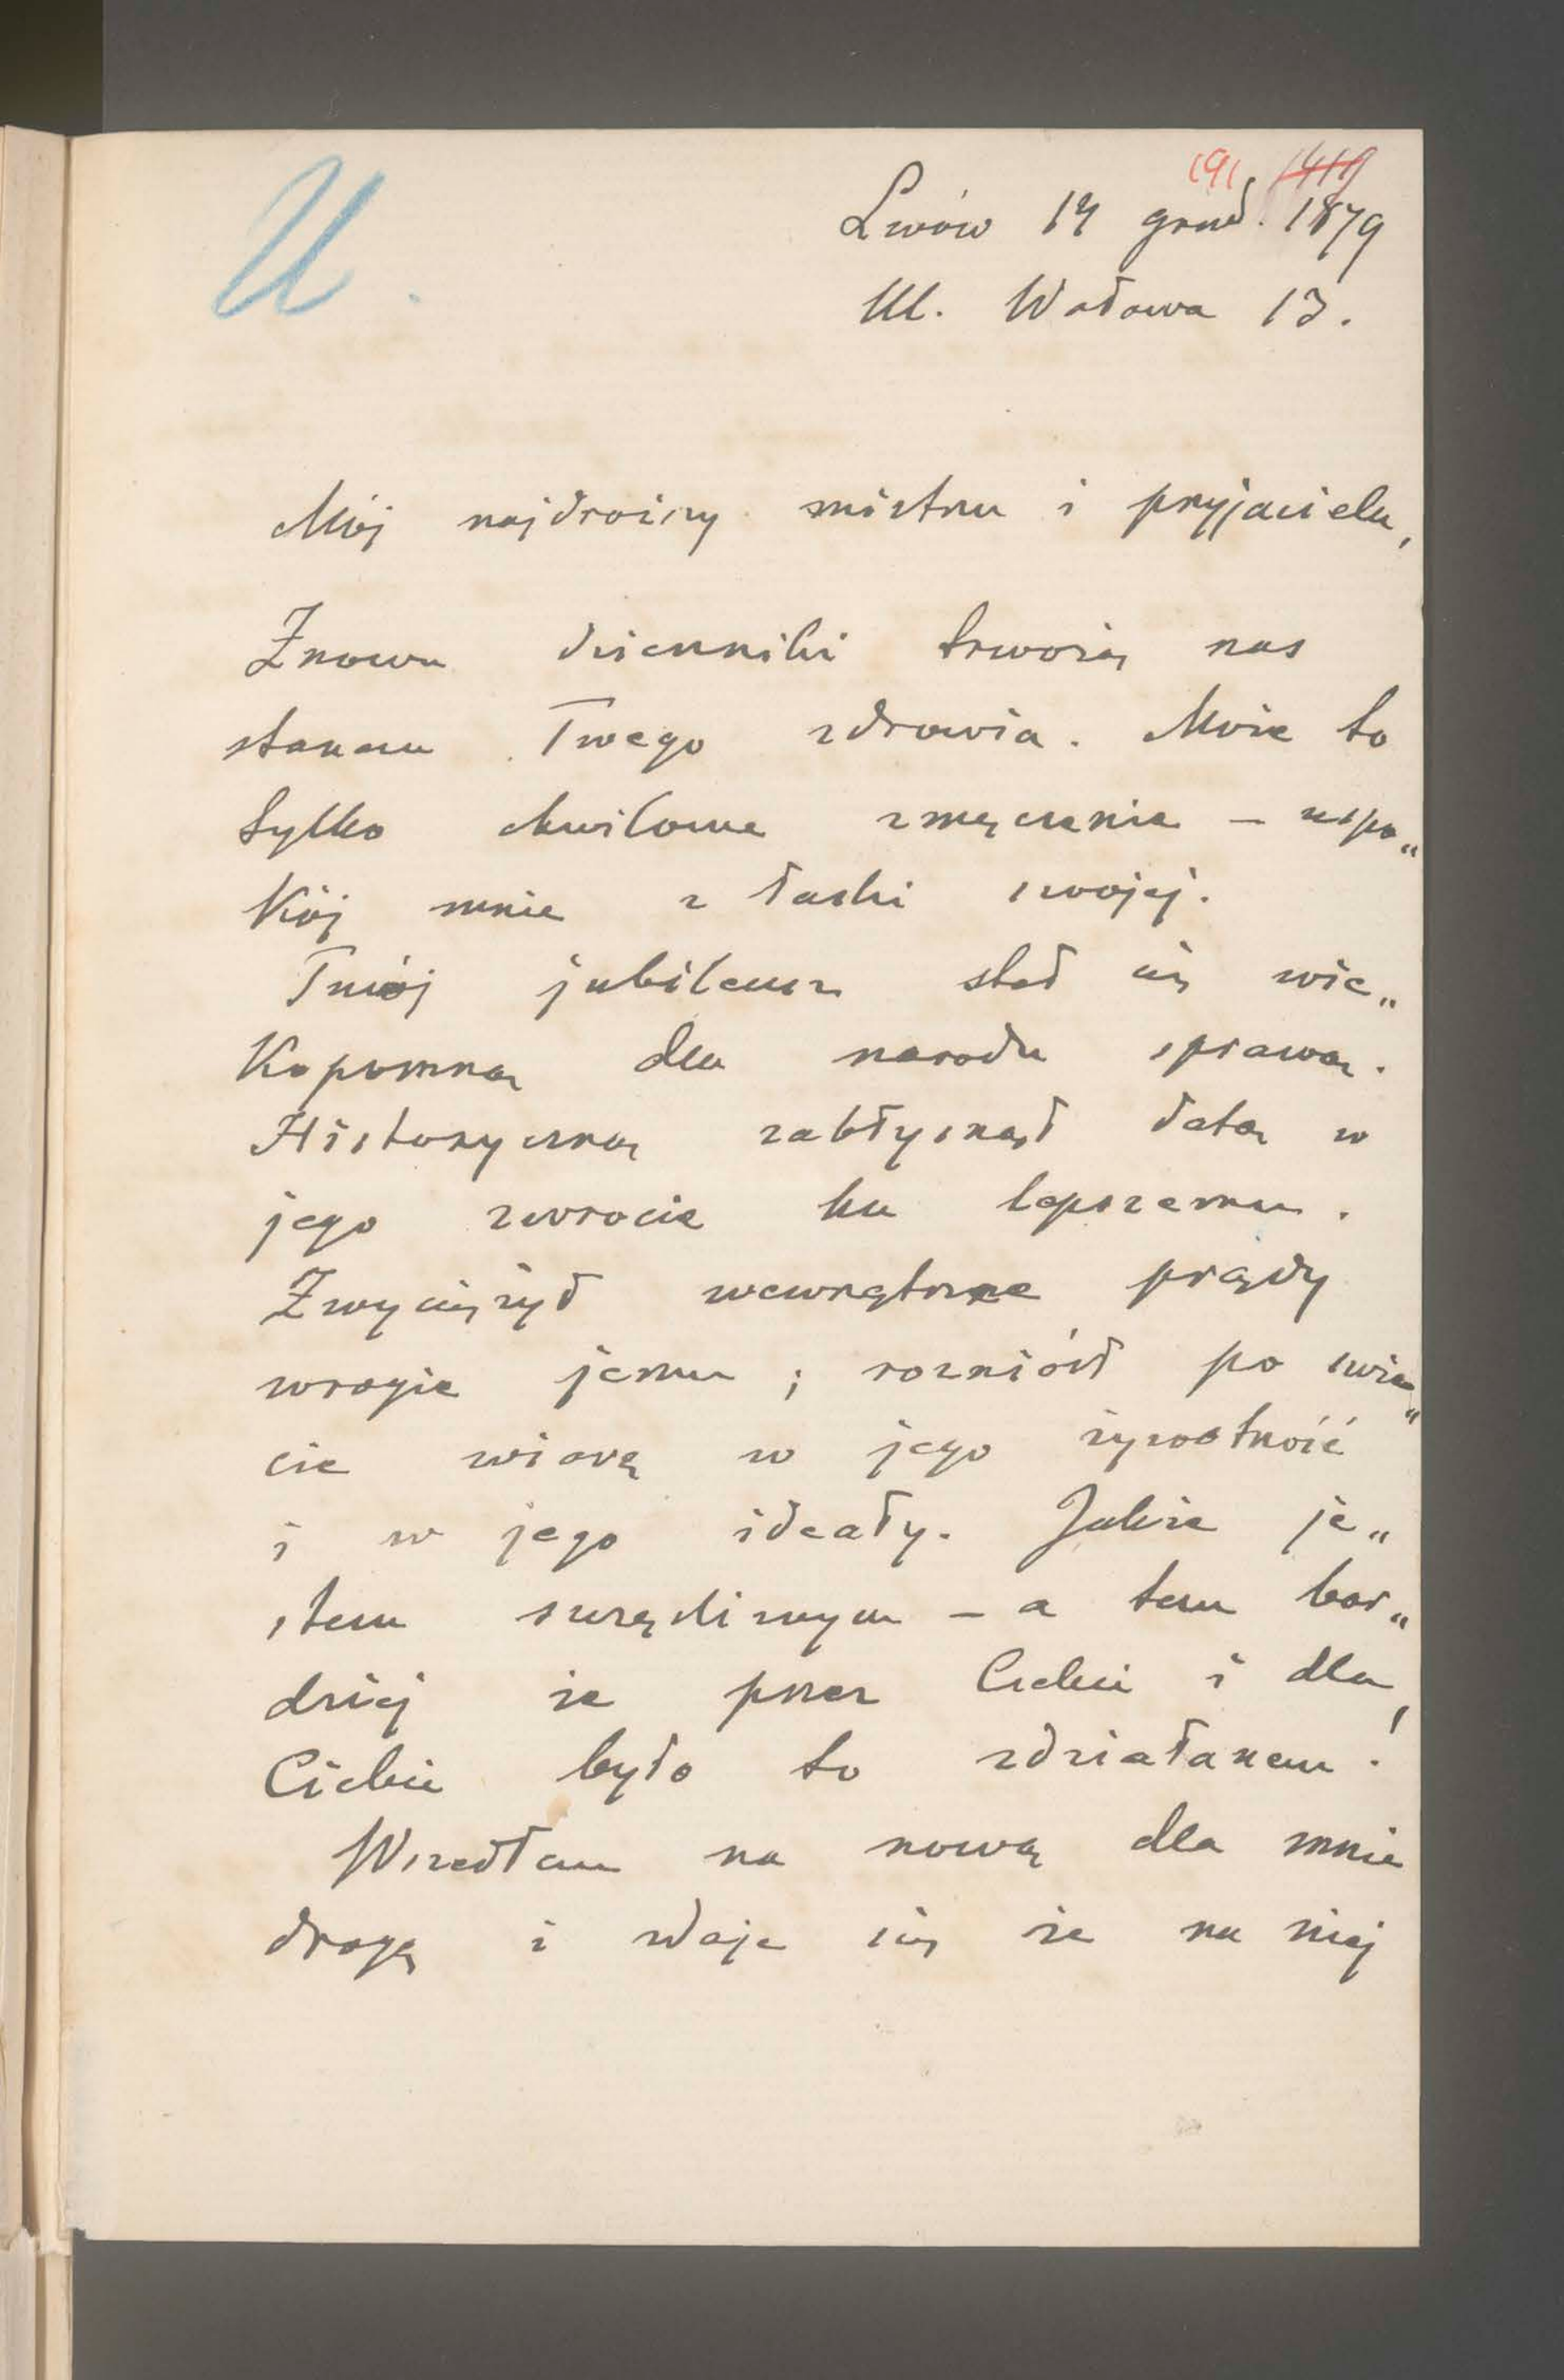 U.
191 1419
Lwów 14 grud. 1879
Ul. Wałowa 13.
Mój najdroższy mistrzu i przyjacielu,
Znowu dzienniki trwożą nas
stanem Twego zdrowia. Może to
tylko chwilowe zmęczenie – uspo„
kój mnie z łaski swojej.
Twój jubileusz stał się wie„
kopomną dla narodu sprawą.
Historyczną zabłysnął datą w
jego zwrocie ku lepszemu.
Zwyciężył wewnętrzne prądy
wrogie jemu; rozniósł po świe„
cie wiarę w jego żywotność
i w jego ideały. Jakże je„
stem szczęśliwym – a tem bar„
dziej że przez Ciebie i dla
Ciebie było to zdziałanem!
Wszedłem na nową dla mnie
drogę i zdaje się że na niej